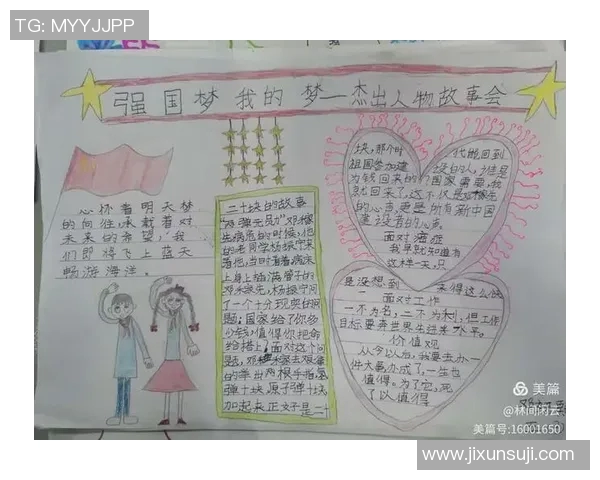 TG: MYYJJPP
强国梦 我的 梦—杰出人物故事会
心怀着明天梦
的向往，承载着对
未来的希望，我
们即将飞上蓝天
畅游海洋。
二十块的故事
"两弹元勋"邓稼
先病危的时候，他
的老同学杨振宁来
看他，当时看着病床
上身上插满管子的
邓稼先，杨振宁问
了一个十分现实的问
题：国家给了你多
少钱，值得你把命
给搭上，面对这个问
题，邓稼先
的举出两根手指氢
弹十块，原子弹十块
加起来正好是二十
块，那个时代能回到
祖国参加建设的人，谁是
为钱回来的？国家需要，我
就回来了，这不仅是邓稼先
的心声更是所有新中国
建设者的心声
面对海症
我早就知道有
这样一天，只
是没想到 来得这么快
面对工作
一不为名，二不为利，但工作
目标要奔世界先进水平。
价值观
从今以后，我要去办一
件大事，办成了，一生也
值得。为了它，死
了以值得
美篇
@林间闲云
美篇号:16001650
www.jixunsuji.com